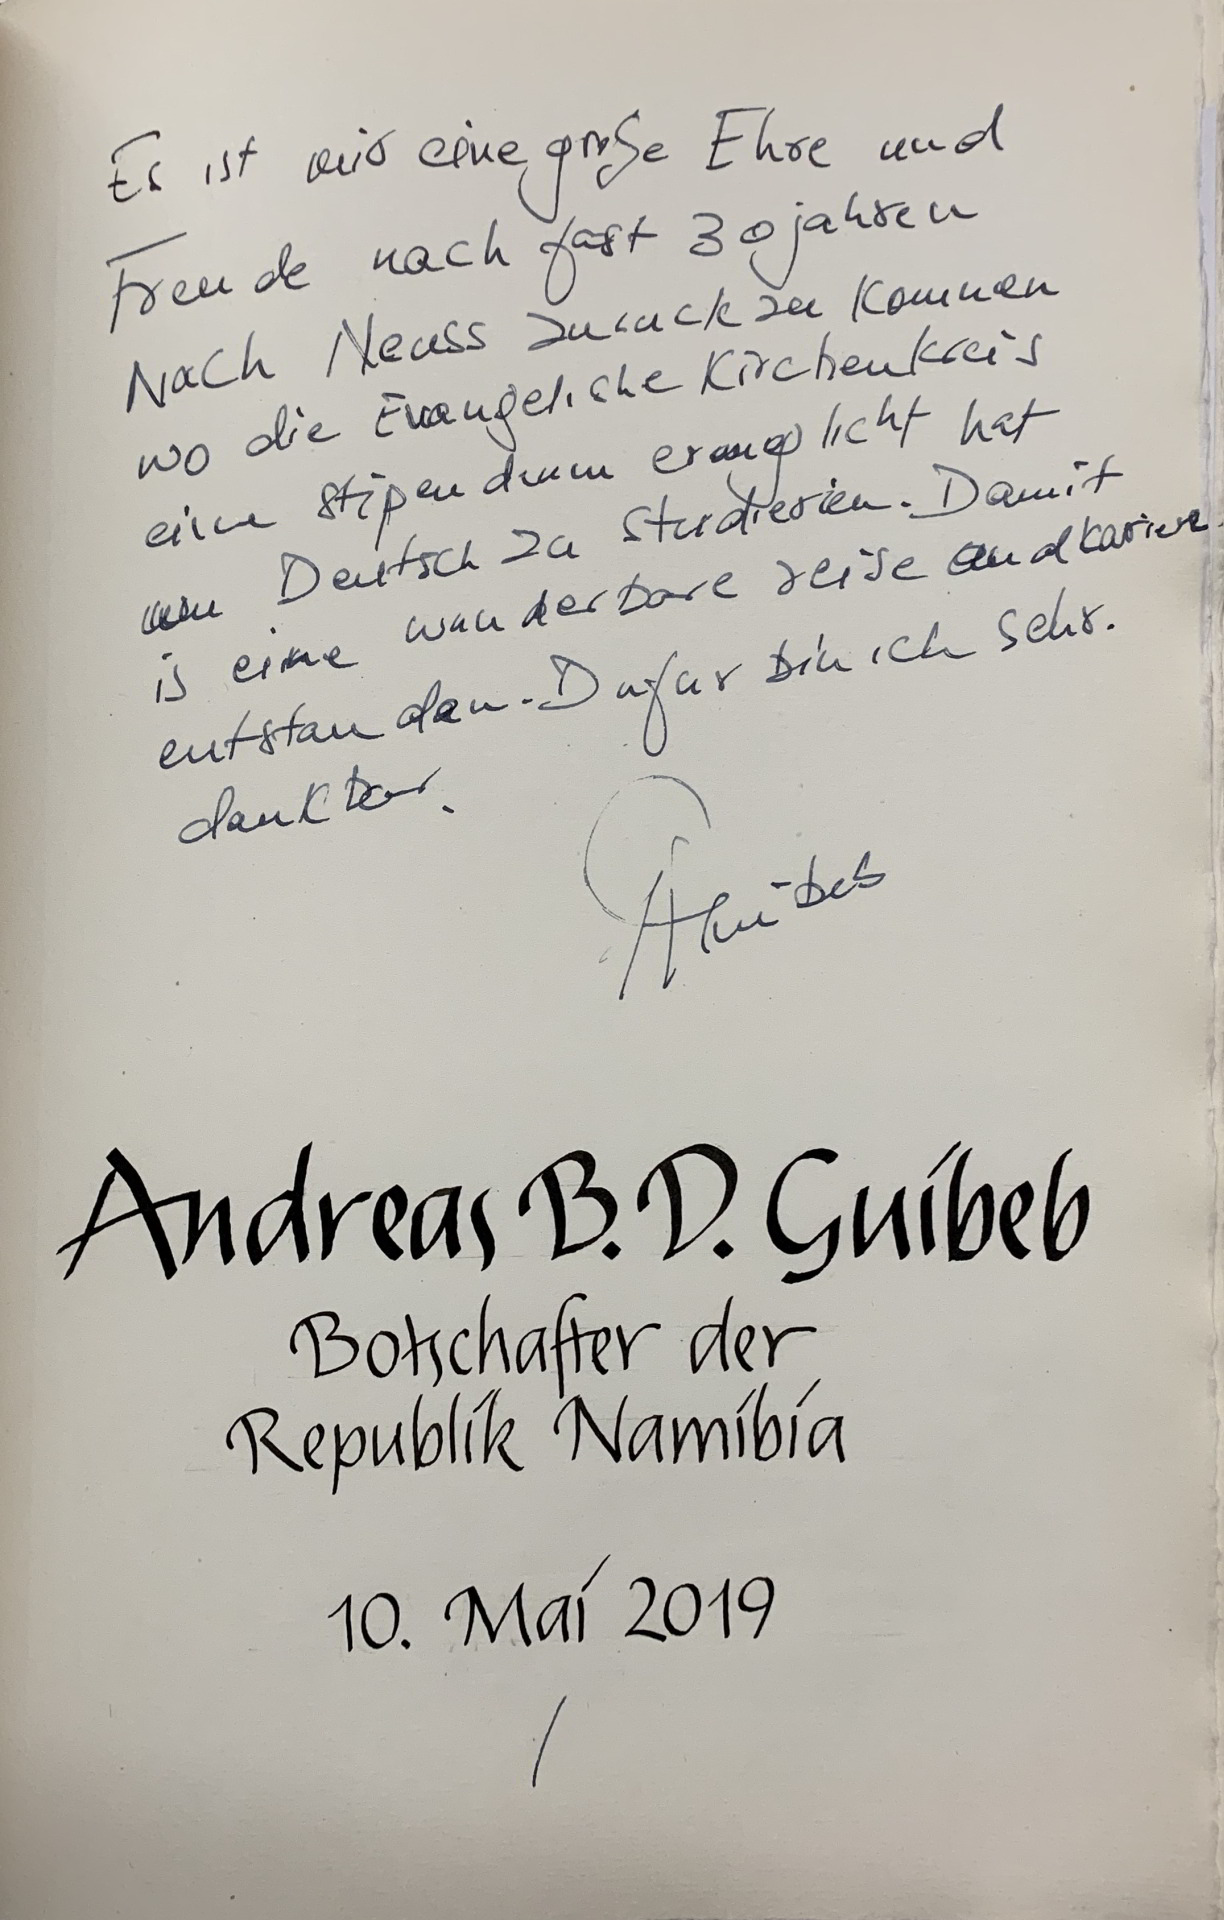 Es ist mir eine große Ehre und
Freude nach fast 30 jahren
Nach Neuss zuruck zu kommen
wo die Evangelishe Kirchenkreis
eine stipendium ermoglicht hat
um Deutsch zu studieren. Damit
is eine wunderbare reise und kariere
entstanden. Dafur bin ich sehr.
dankbar.
AGuibeb
Andreas B. D. Guibeb
Botschafter der
Republik Namibia
10. Mai 2019